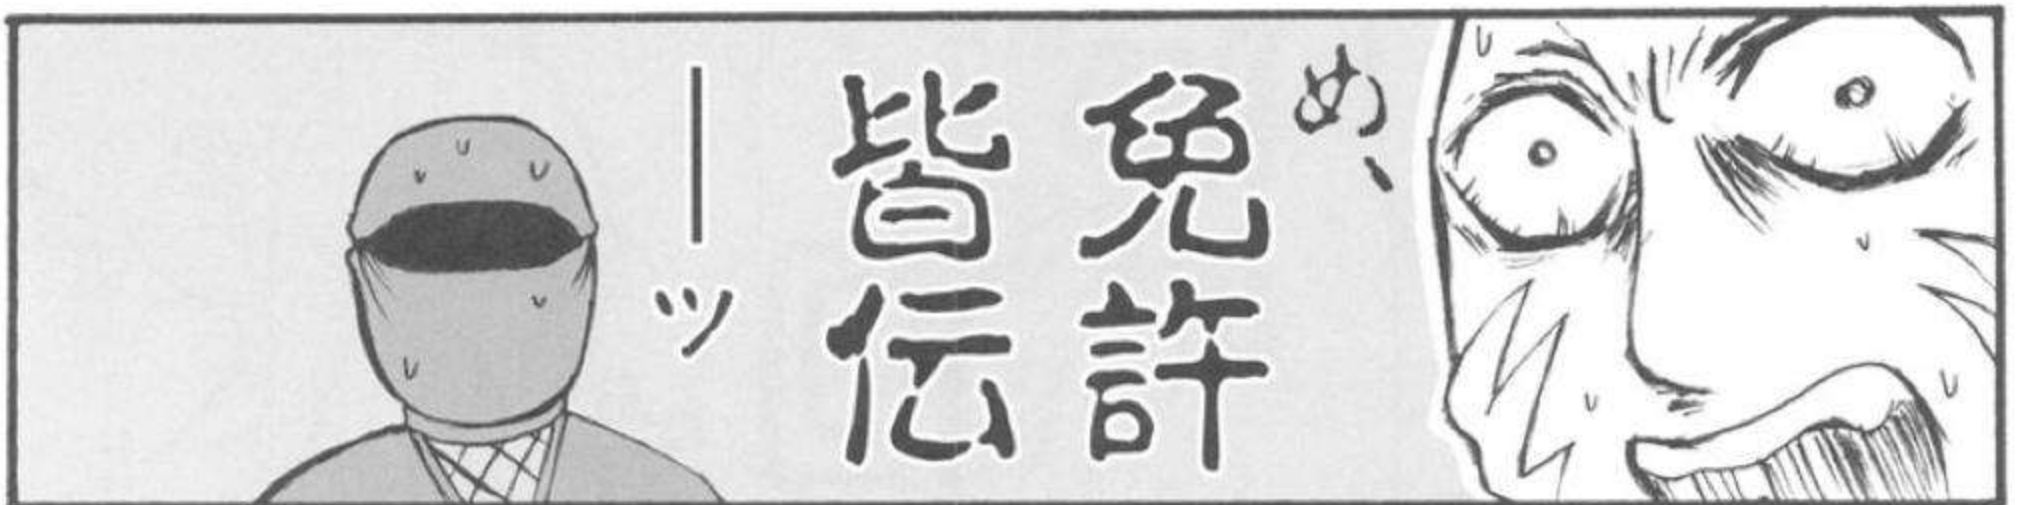 め、
免許
皆伝
―ッ